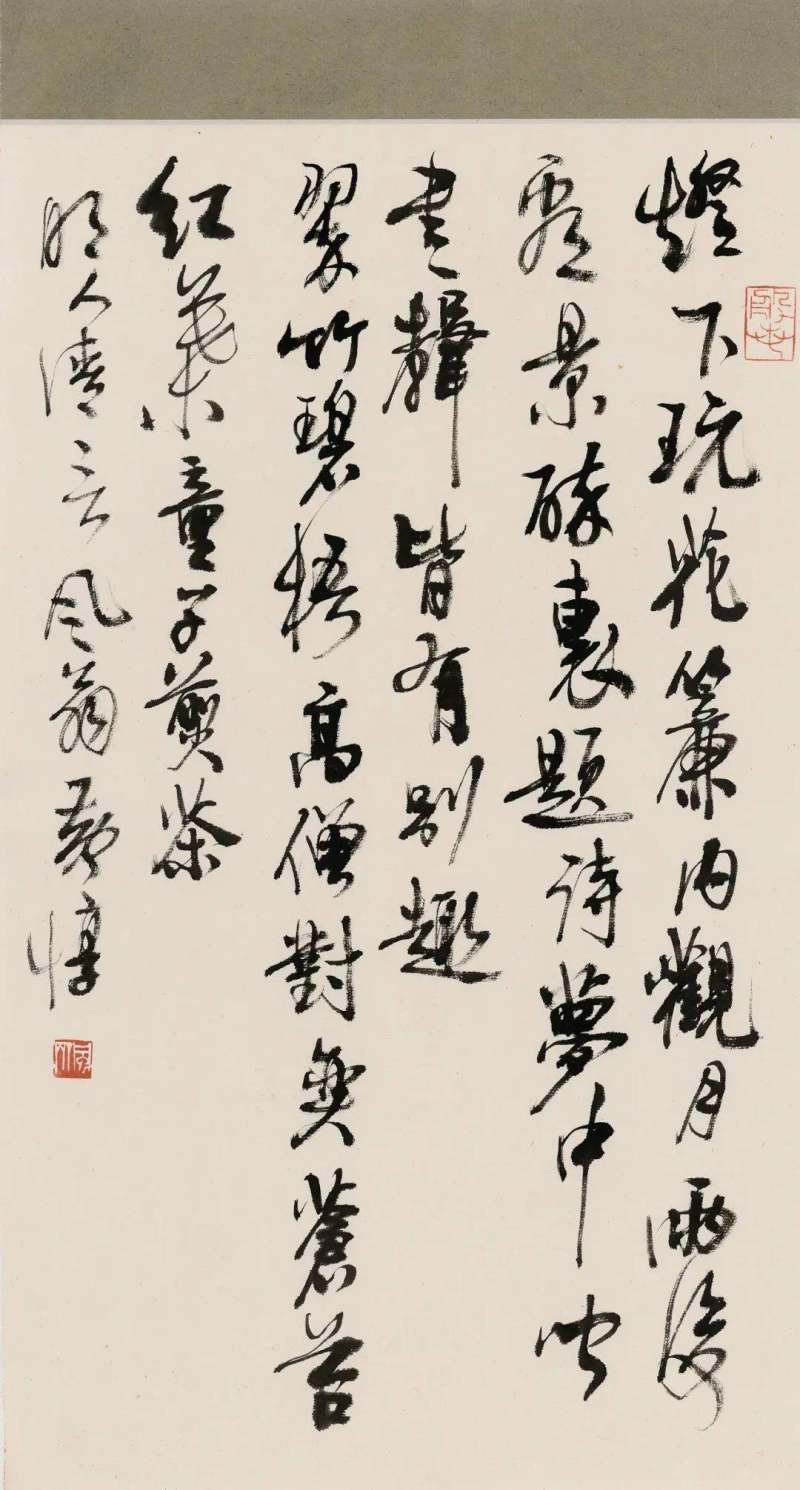 燈下玩花簾內觀月雨後
看景醉裏題詩夢中聞
書聲皆有別趣
翠竹碧梧高僧對奕蒼苔
紅葉童子煎茶
明人清言風翁黃惇